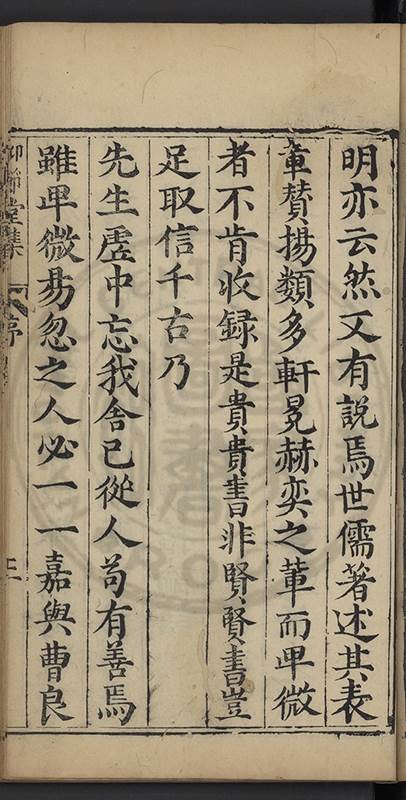 明亦云然又有說焉世儒著述其表
章贊揚類多軒冕赫奕之軰而卑微
者不肯收録是貴貴書非賢賢書豈
足取信千古乃
先生虛中忘我舍己從人苟有善焉
雖卑微易忽之人必一一嘉與曹良
仰節堂集 序